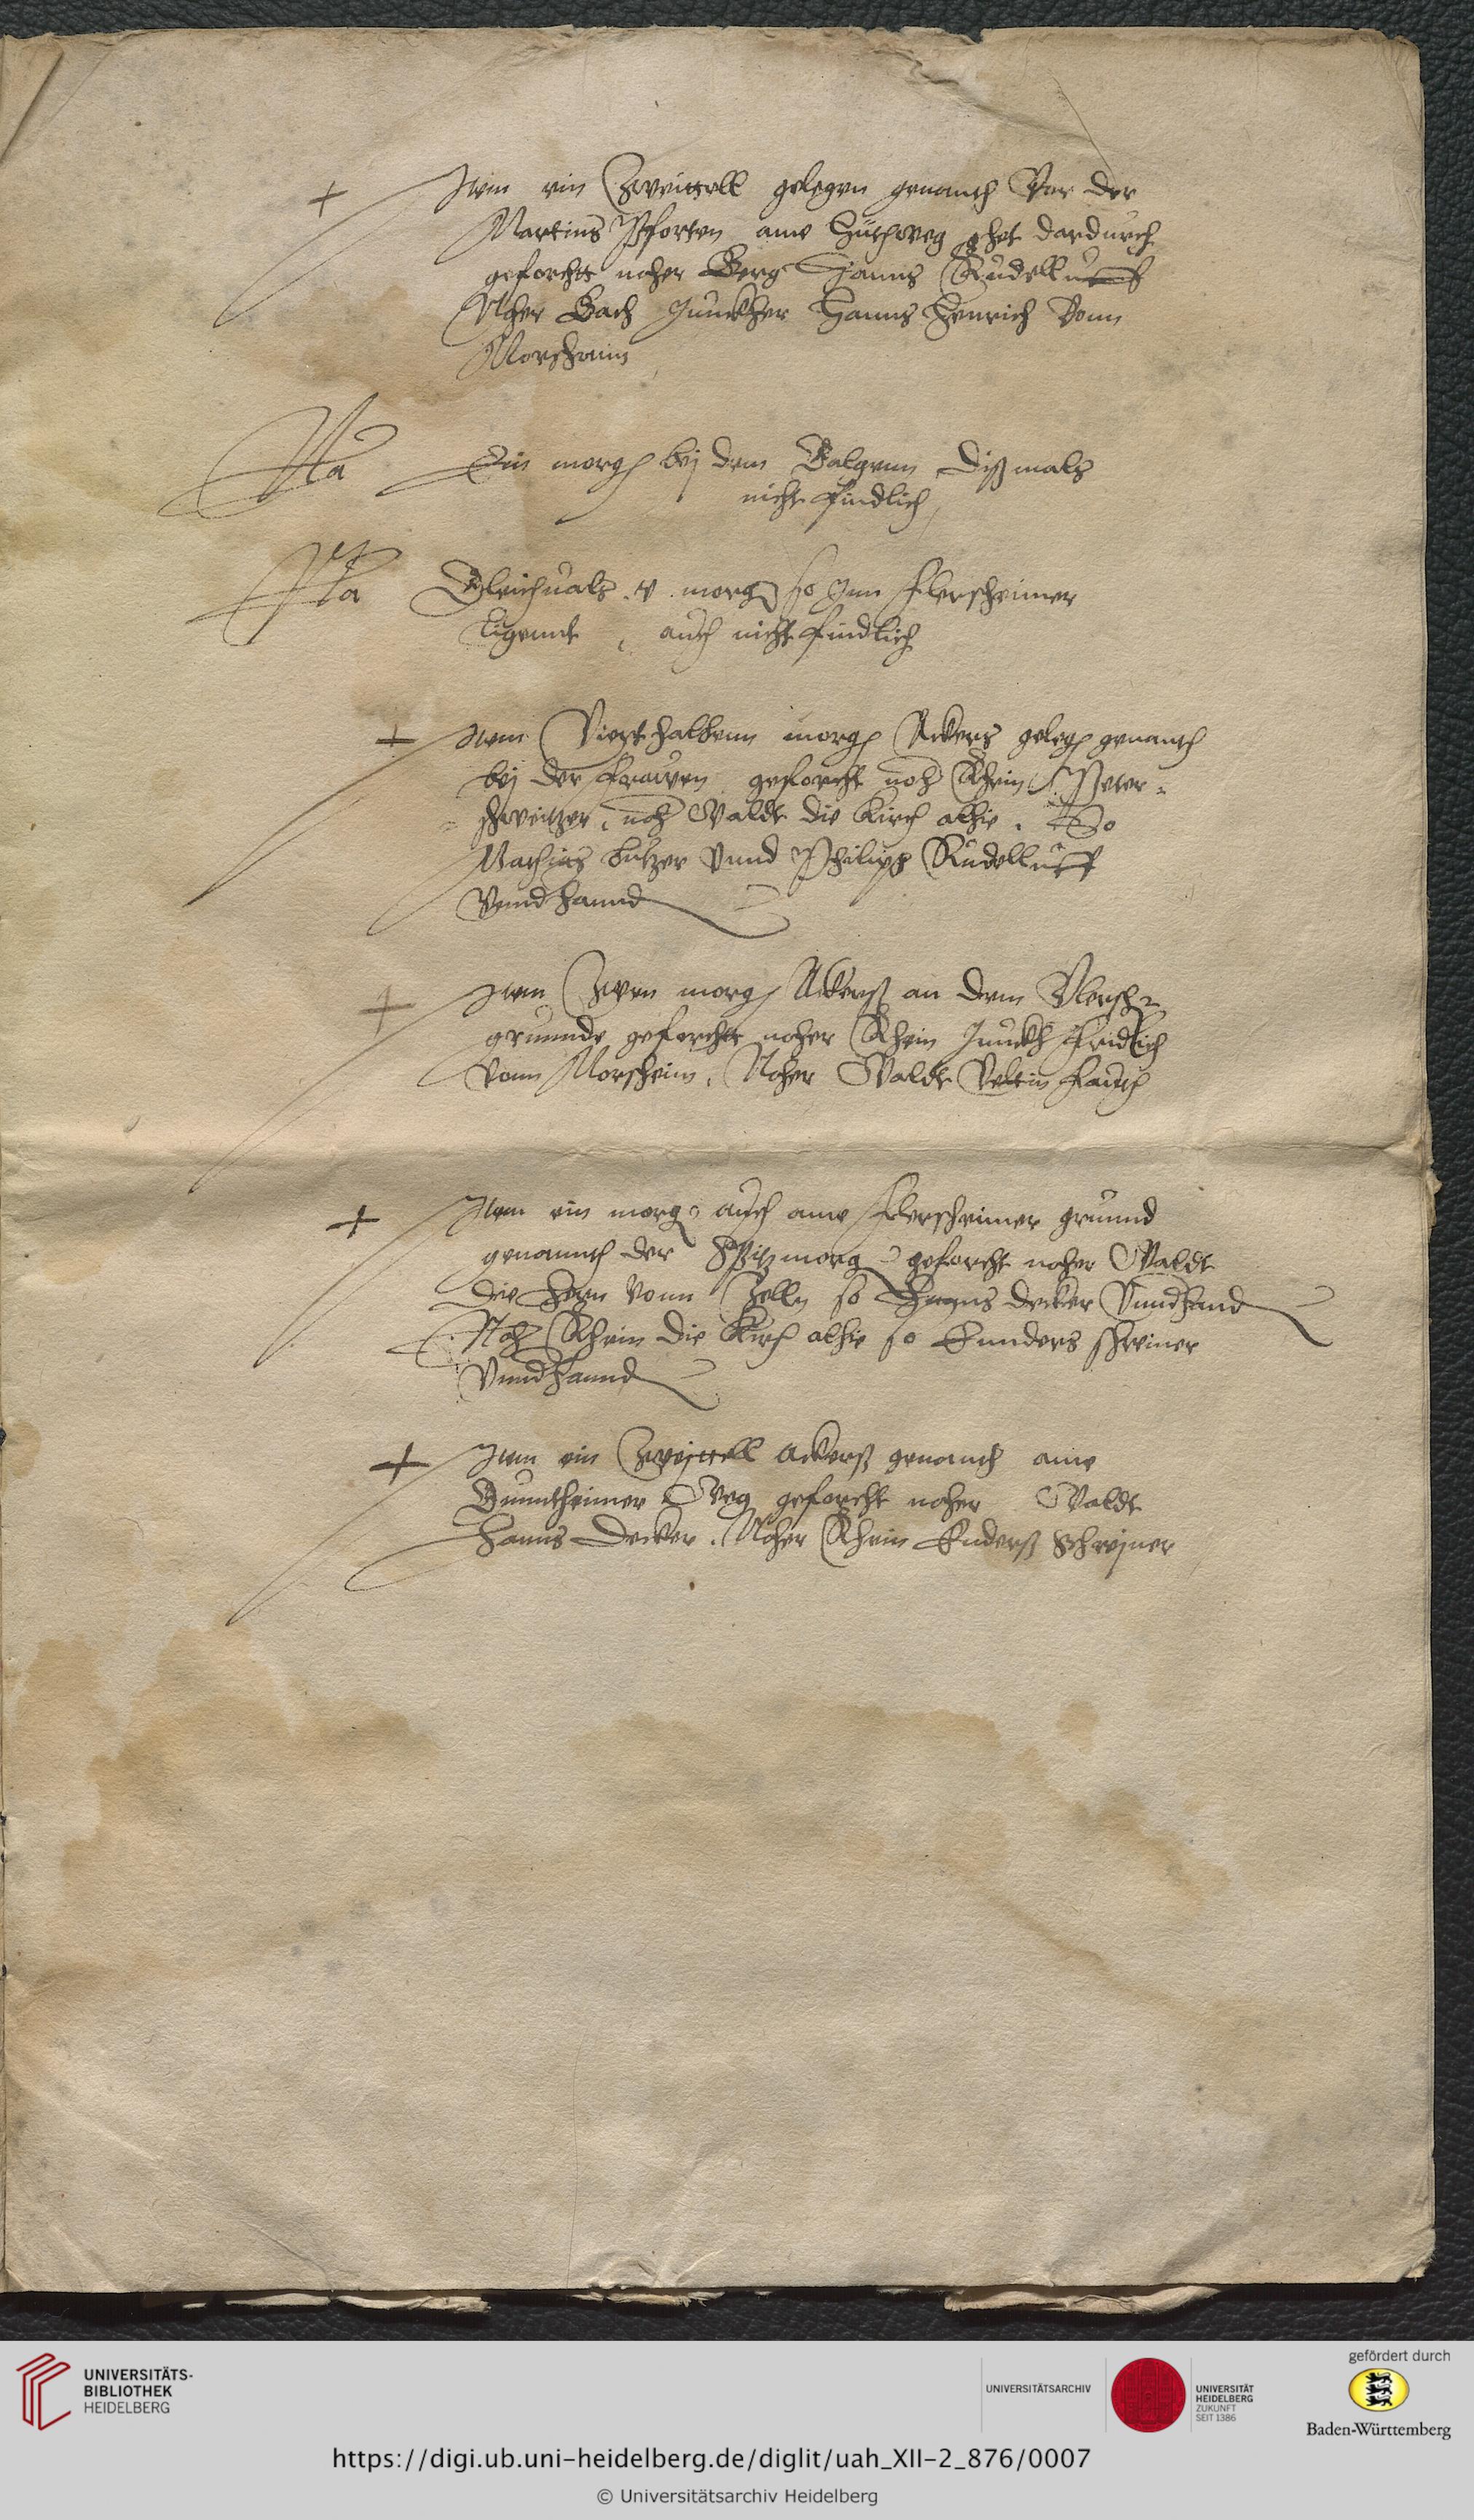 + Item ein Zweittell gelegen genanth Vor der
Martins Pforten ame Hüthweg ghet dardurch
geforcht noher Berg Hanns Rudellu
Noher Bach Junckher Hanns Henrich Vonn
Morsheim
Na Ein morg bej dem Galgenn dißmals
nicht findlich
Na Gleichuals .v. morg so Inn Flersheimer
ligennt, auch nicht findlich
+ Item Vierthalbenn morg Ackers geleg genanth
bej der geforcht noh Rhein Peter
Schweitzer, noh Waldt die Kirch alhie. So
Mathias Butzer Vnnd Philips Rudelluff
Vnndhannd
+ Item Zwen morg Ackerß an dem Vlersh-
grunnde geforcht noher Rhein Junckh Fridrich
vonn Morsheim, Noher Waldt Veltin Fauth
+ Item ein morg auch ame Flersheimer grunnd
genannth der Spitzmorg geforcht noher Waldt
die Hern vonn Zelln so Hanns Decker Vnndhand
Noh Rhein die Kirch alhie so Ennders schreiner
Vnndhannd
+ Item ein Zwejttell Ackerß genanth ame
Guntheimer Weg geforcht noher Waldt
Hanns Decker. Noher Rhein Enderß Schrejner
UNIVERSITÄTS-
BIBLIOTHEK
HEIDELBERG
UNIVERSITÄTSARCHIV
UNIVERSITÄT
HEIDELBERG
ZUKUNFT
SEIT 1386
gefördert durch
Baden-Württemberg
https://digi.ub.uni-heidelberg.de/diglit/uah_XII-2_876/0007
© Universitätsarchiv Heidelberg